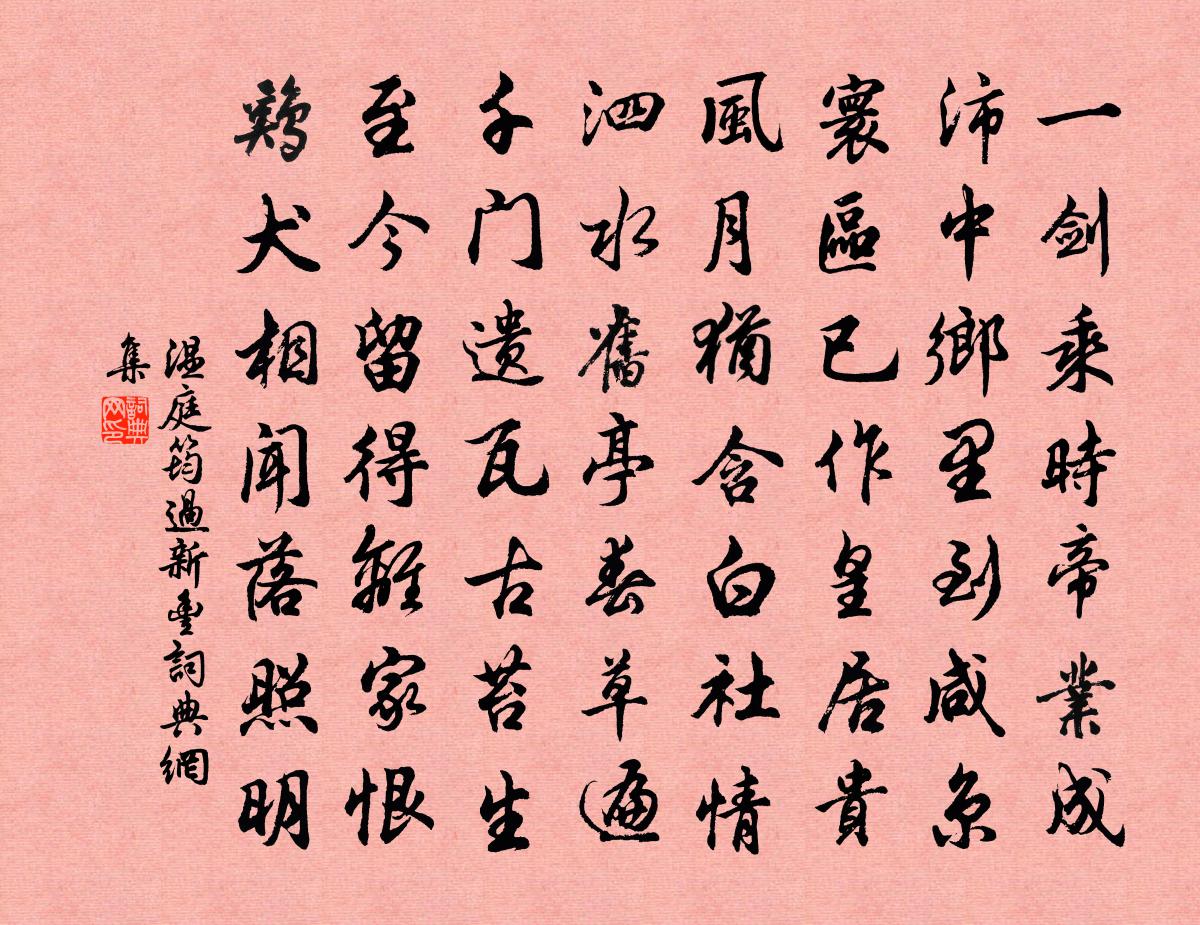 一劍乘時帝業成
沛中鄉里到咸京
寰區已作皇居貴
風月猶含白社情
泗水舊亭春草遍
千门遗瓦古苔生
至今留得離家恨
鷄犬相聞落照明
温庭筠過新豐詞典網
集
詞典
网印